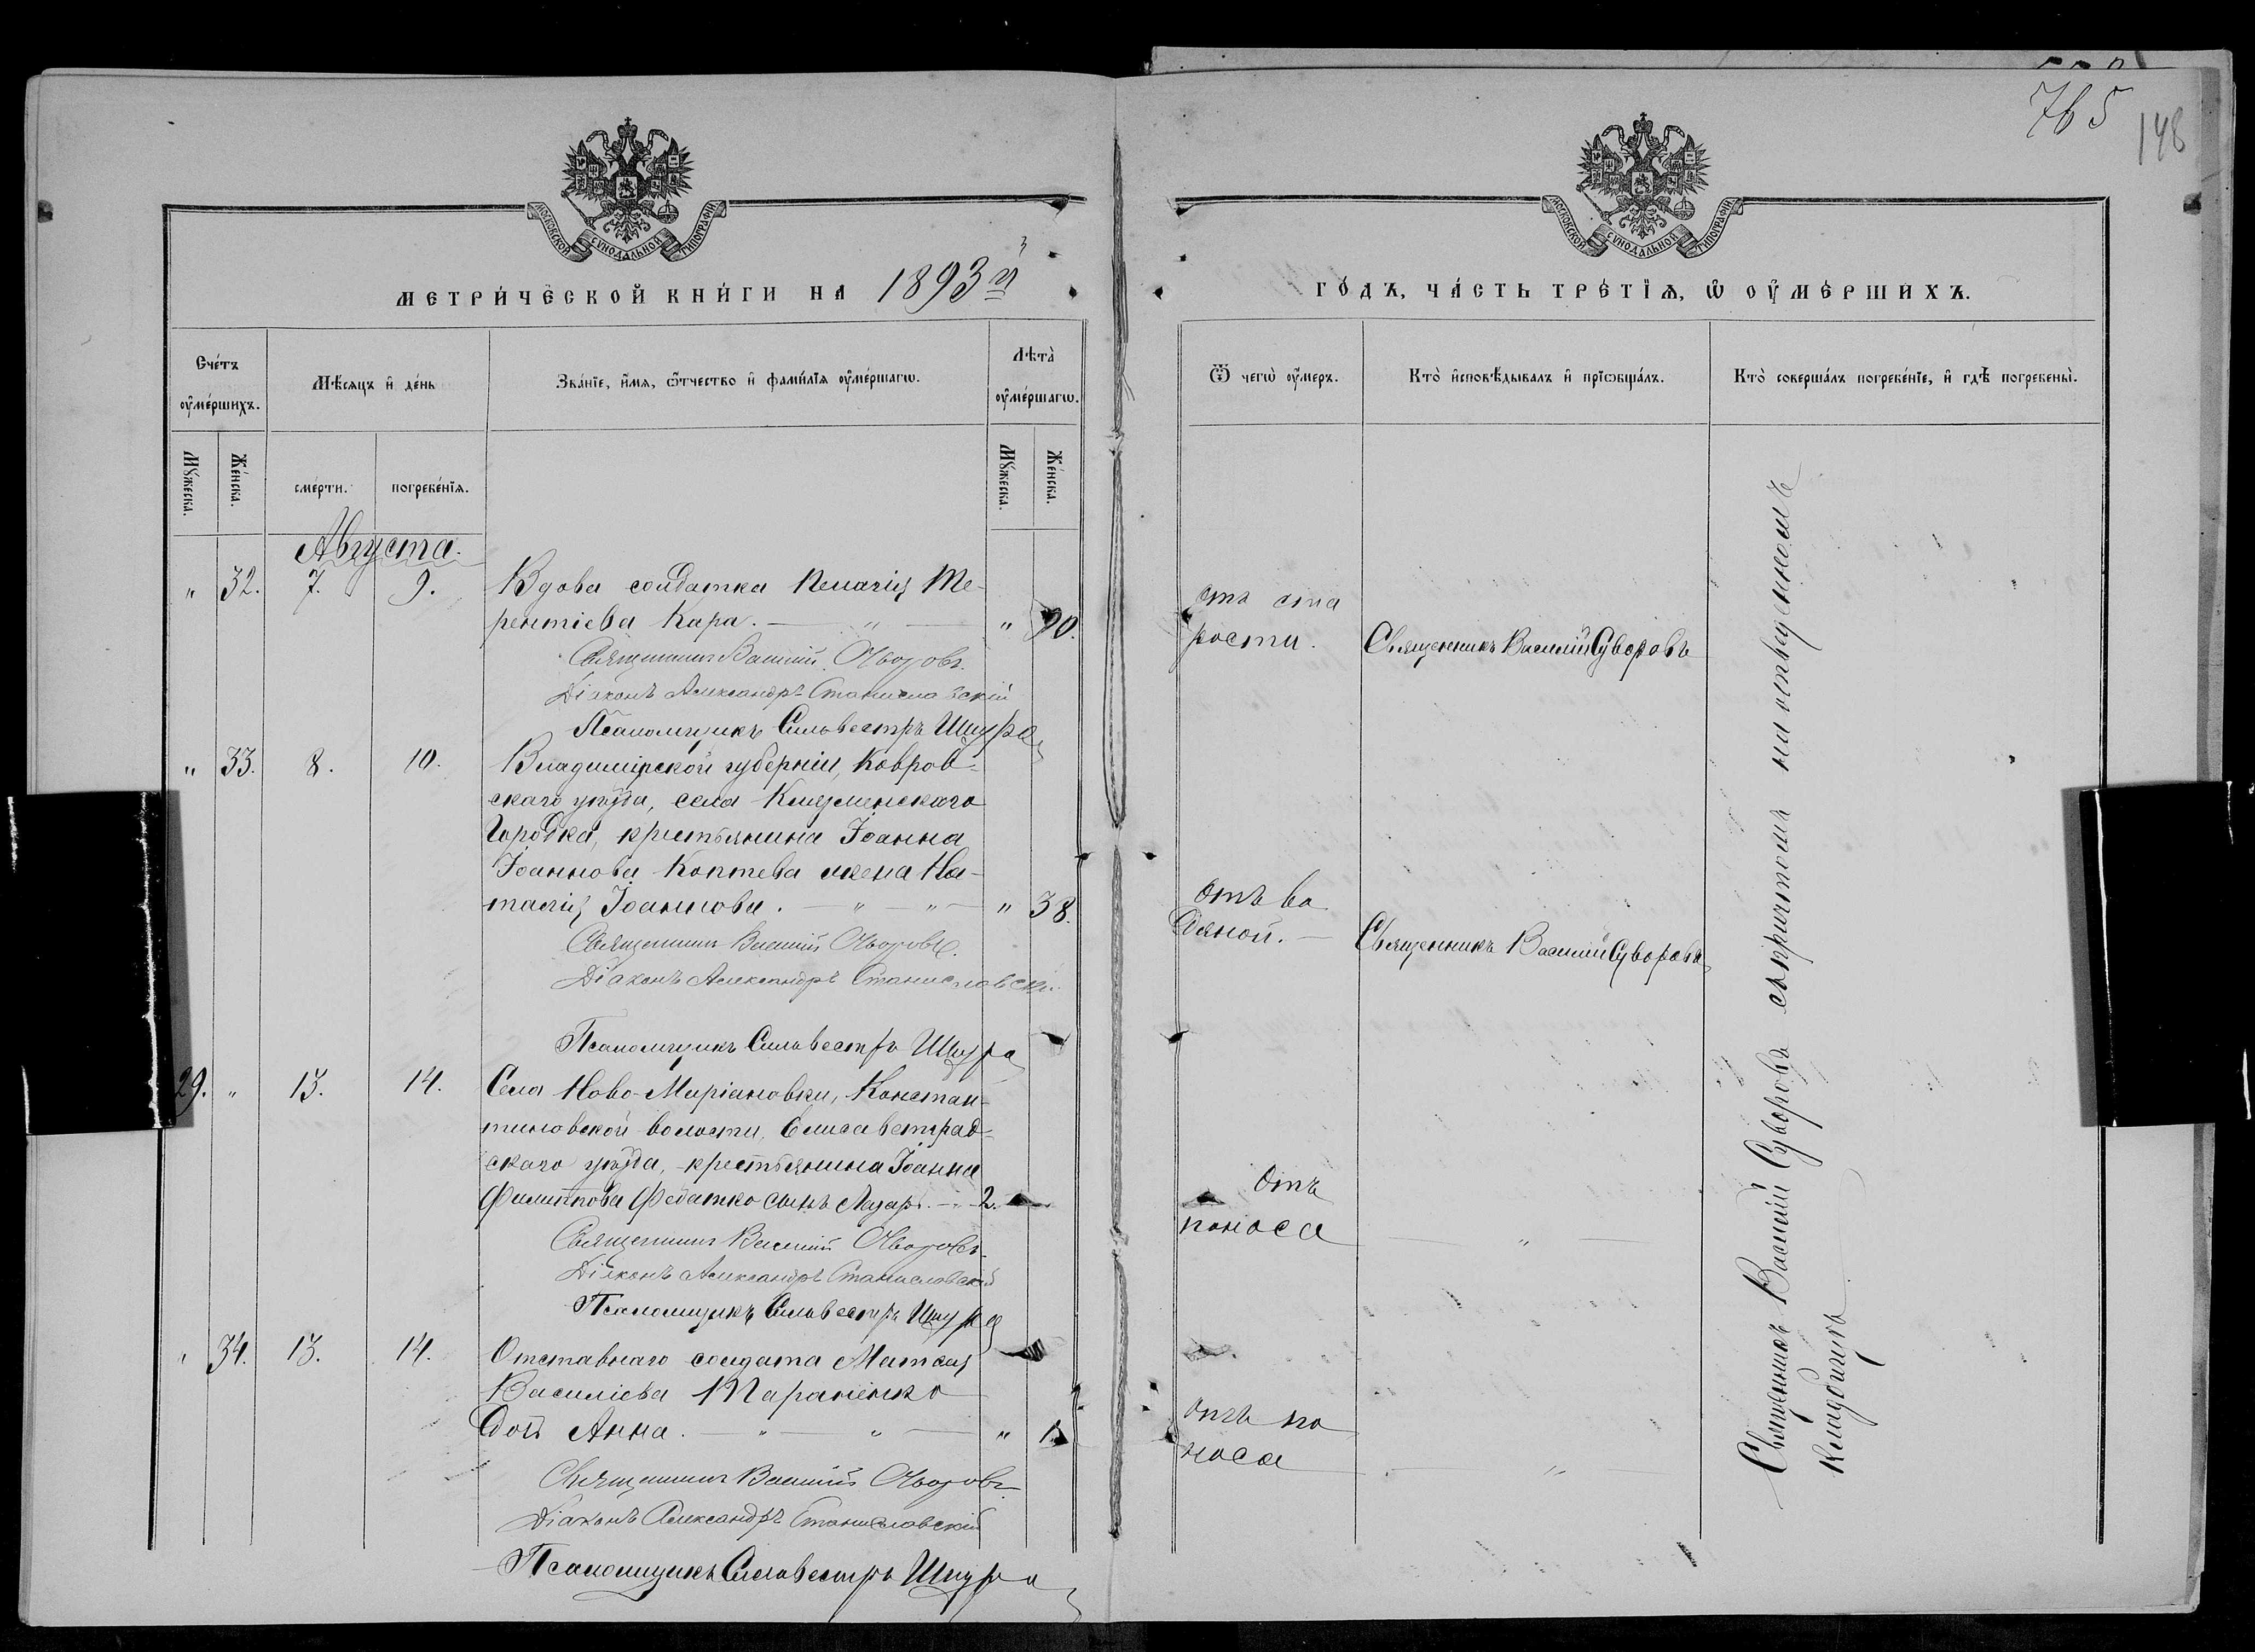 765
148
МОСКОВСКОЙ СѴНОДАЛЬНОЙ ТИПОГРАФІИ
МЕТРИ́ЧЕСКОЙ КНИ́ГИ НА 1893й
Сче́тъ ᲂу҆ме́ршихъ.
Мѣ́сяцъ и҆ де́нь
Зва́нїе, и҆́мѧ, ѻ҆́тчество и҆ фами́лїѧ ᲂу҆ме́ршагѡ.
Лѣта̀ ᲂу҆ме́ршагѡ.
Мꙋ́жеска.
Же́нска.
сме́рти.
погребе́нїѧ.
Мꙋ́жеска.
Же́нска.
Августа.
" 32. 7. 9. Вдова солдатка Пелагія Те-
рентіева Кара. — " — " 90.
Священникъ Василій Суворовъ.
Діаконъ Александръ Станиславскій
Псаломщикъ Сильвестръ Щура
" 33. 8. 10. Владимірской губерніи, Ковров-
скаго уѣзда, села Клязменскаго
Городка, крестьянина Іоанна
Іоаннова Коптева жена На-
талія Іоаннова. — " — " — " 38.
Священникъ Василій Суворовъ.
Діаконъ Александръ Станиславскі.
Псаломщикъ Сильвестръ Щура
29. " 13. 14. Села Ново-Маріановки, Констан-
тиновской волости, Елисаветград-
скаго уѣзда, крестьянина Іоанна
Филиппова Федатко сынъ Лазарь. — 2.
Священникъ Василій Суворовъ
Діаконъ Александръ Станиславскій
Псаломщикъ Сильвестръ Щура
" 34. 13. 14. Отставнаго солдата Матѳія
Василіева
дочь Анна. — " — " — " 1.
Священникъ Василій Суворовъ
Діаконъ Александръ Станиславскій
Псаломщикъ Сильвестръ Щура
МОСКОВСКОЙ СѴНОДАЛЬНОЙ ТИПОГРАФІИ
ГО́ДЪ, ЧА́СТЬ ТРЕ́ТЇѦ, Ѡ҆ ОУ҆МЕ́РШИХЪ.
Ѿ чегѡ̀ ᲂу҆́меръ.
Кто̀ и҆сповѣ́дывалъ и҆ прїѡбща́лъ.
Кто̀ соверша́лъ погребе́нїе, и҆ гдѣ̀ погребены̀.
Отъ ста
рости.
Священникъ Василій Суворовъ
Отъ во
дяной. —
Священникъ Василій Суворовъ
Отъ
поноса
— " —
Отъ по
носа
— " —
Священникъ Василій Суворовъ съ причтомъ на отведенномъ
кладбищѣ.